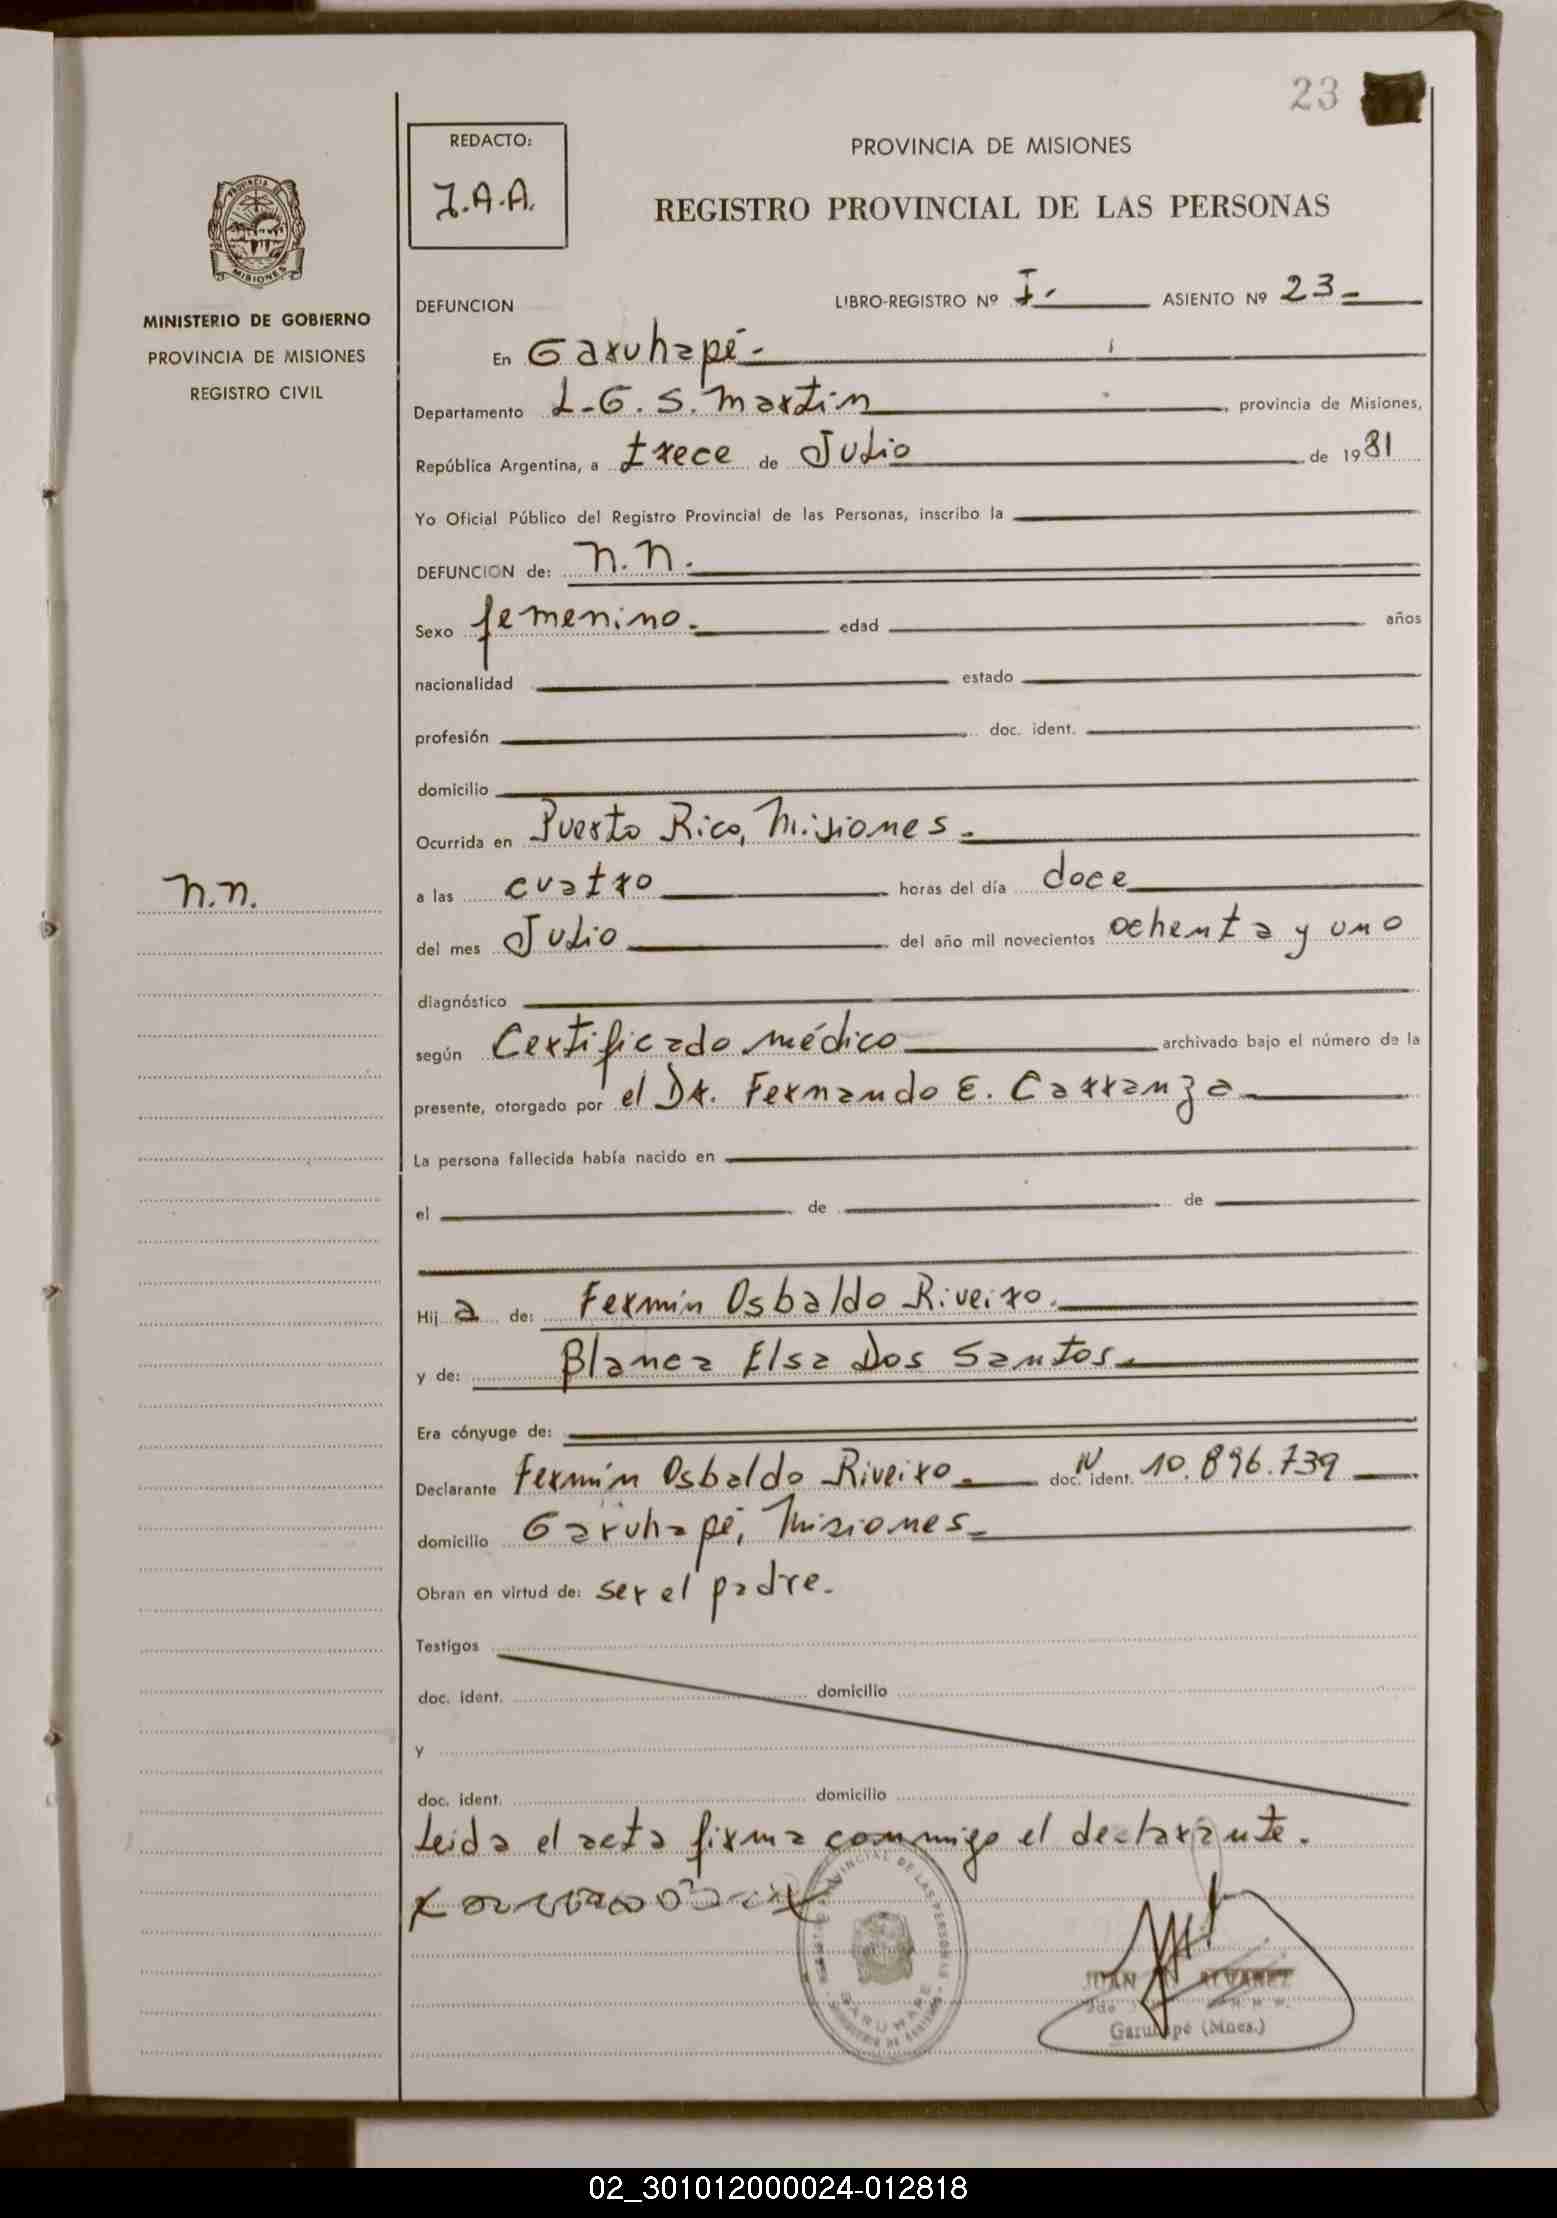 23
REDACTO:
J.A.A.
PROVINCIA DE MISIONES
REGISTRO PROVINCIAL DE LAS PERSONAS
PROVINCIA DE
MISIONES
MINISTERIO DE GOBIERNO
PROVINCIA DE MISIONES
REGISTRO CIVIL
DEFUNCION LIBRO-REGISTRO Nº I. ASIENTO Nº 23-
En Garuhapé-
Departamento L.G.S. Martin, provincia de Misiones,
República Argentina, a trece de Julio de 1981
Yo Oficial Público del Registro Provincial de las Personas, inscribo la
DEFUNCION de: N.N.
Sexo femenino. edad años
nacionalidad estado
profesión doc. ident.
domicilio
Ocurrida en Puerto Rico, Misiones.
N.N.
a las cuatro horas del día doce
del mes Julio del año mil novecientos ochenta y uno
diagnóstico
según Certificado médico archivado bajo el número de la
presente, otorgado por el Dr. Fernando E. Carranza
La persona fallecida había nacido en
el de de
Hija de: Fermín Osbaldo Riveiro.
y de: Blanca Elsa Dos Santos.
Era cónyuge de:
Declarante Fermín Osbaldo Riveiro. doc. ident. 10.896.739
domicilio Garuhapé, Misiones-
Obran en virtud de: ser el padre.
Testigos
doc. ident. domicilio
y
doc. ident. domicilio
Leida el acta firma conmigo el declarante.
PROVINCIAL DE LAS PERSONAS
JUAN ALVAREZ
Garuhapé (Mnes.)
02_301012000024-012818